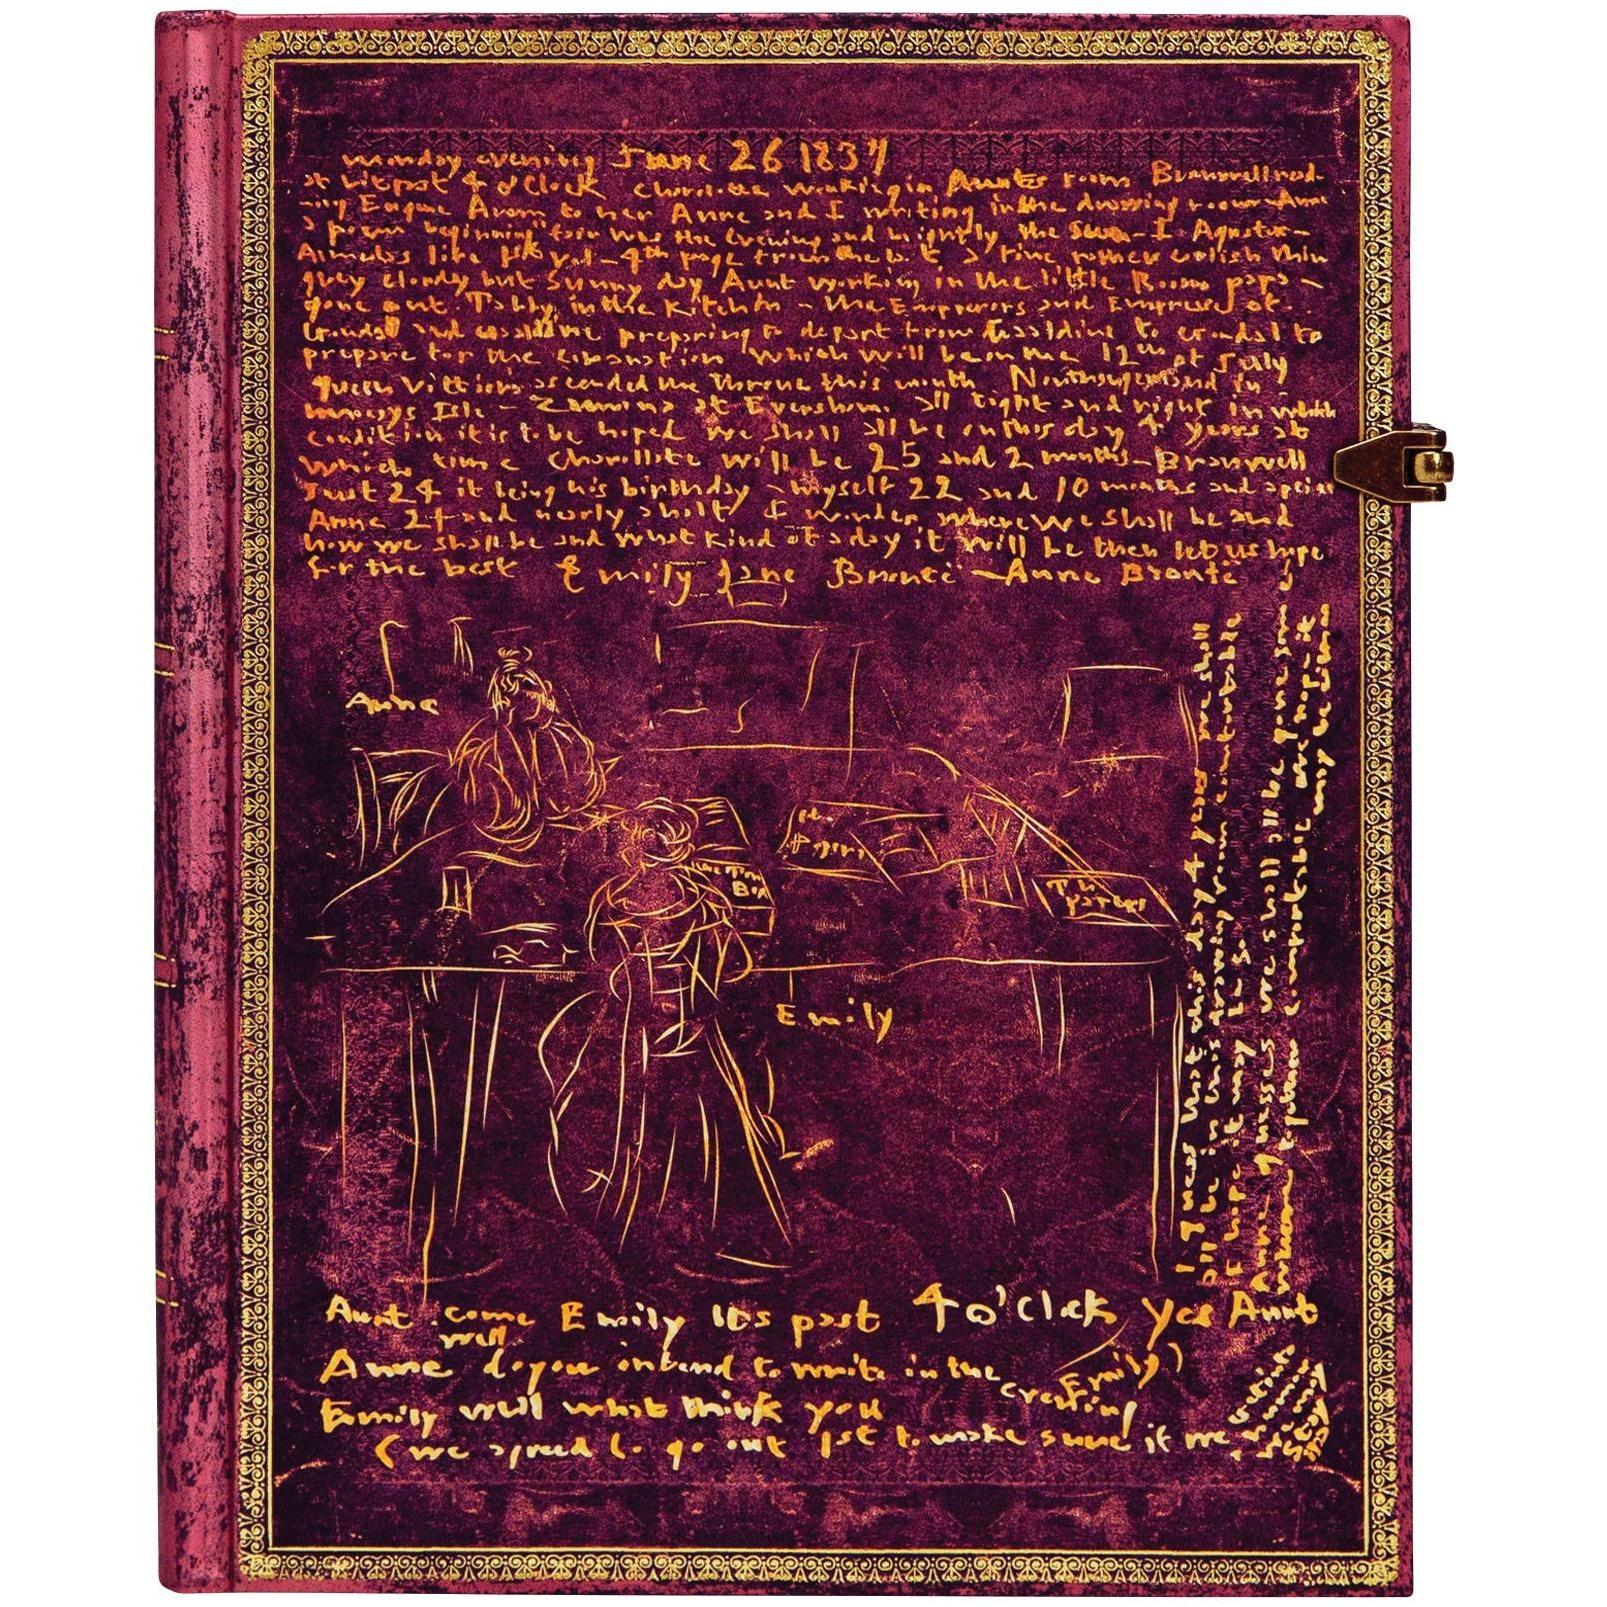 monday evening June 26 1837
at bit past 4 o'Clock Charolotte working in Aunts room Branwell read-
ing Eugene Aram to her Anne and I writing in the drawing room Anne
a poem beginning fair was the evening and brightly the sun - I Agustus-
Almedas life 1st vol - 4th page from the last a fine rather coolish thin
grey cloudy but Sunny day Aunt working in the little Room papa -
gone out Tabby in the Kitchin - the Emperors and Empresses of
Gondal and Gaaldine preparing to depart from Gaaldine to Gondal to
prepare for the coranation which will be on the 12th of July
queen Vittiora ascended the throne this month Northangerland in
Monceys Isle - Zamorna at Eversham. all tight and right in which
condition it is to be hoped we shall all be on this day 4 years at
which time Charollote will be 25 and 2 months - Branwell
just 24 it being his birthday - myself 22 and 10 months and a peice
Anne 21 and nearly a half I wonder where we shall be and
how we shall be and what kind of a day it will be then let us hope
for the best Emily Jane Brontë - Anne Brontë
Anne
The Tin
Box
papers
The
papers
Emily
I guess that this day 4 years we shall
all be in this drawing room comfortable
I hope it may be so
Anne guesses we shall all be gone some
comfortable we hope it
may be
Aunt come Emily Its past 4 o'Clock Yes Aunt
Anne well do you intend to write in the evening
Emily)
Emily well what think you
(we agreed to go out 1st to make sure it we